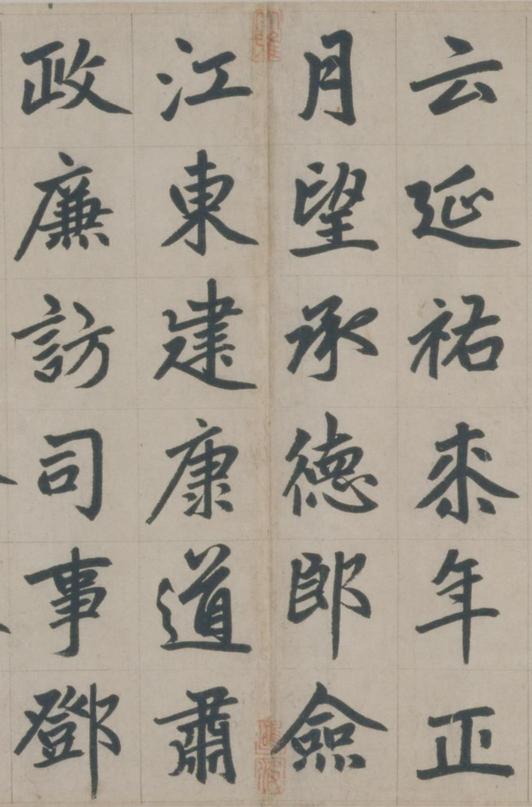 云延祐桼年正
月望承德郎僉
江東建康道肅
政廉訪司事鄧